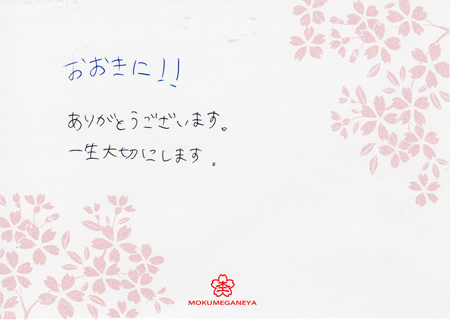 おおきに!!
ありがとうございます。
一生大切にします。
MOKUMEGANEYA